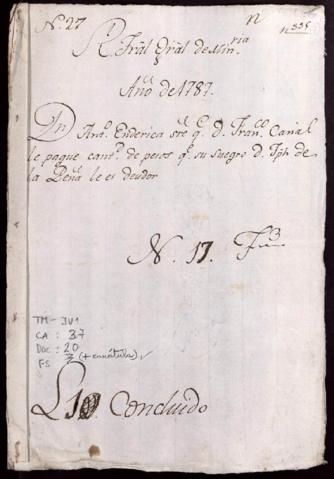 N. 27
n
n 335
Rl. Tral. Gral de Minria
Año de 1787.
Dn Anto. Enderica sre. q. D. Franco. Canal
le pague cantd. de pesos q. su suegro D. Jph de
la Peña le es deudor
N. 17. Fs 3
TM - JV1
CA : 37
DOC : 20
FS : 3 (+ carátula)
L 10. Concluido